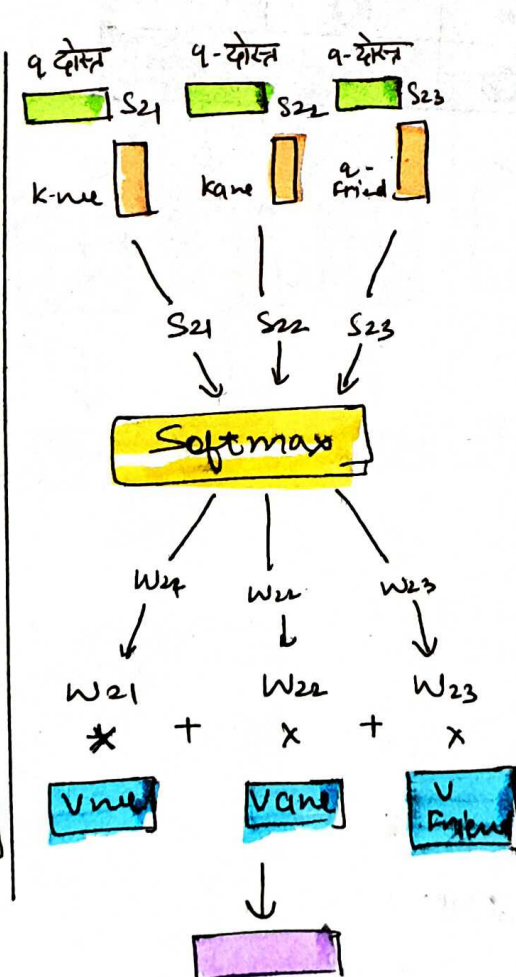 q दोस्त q-दोस्त q-दोस्त
S21 S22 S23
K-we Kane q-Friend
S21 S22 S23
Softmax
W21 W22 W23
W21 W22 W23
* + x + x
Vwe Vane V Friend